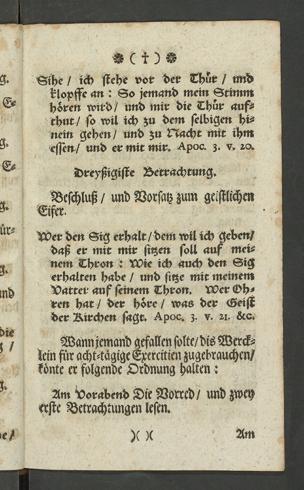 ❁ ( † ) ❁
Sihe / ich stehe vor der Thür / und
klopffe an : So jemand mein Stimm
hören wird / und mir die Thür auf-
thut / so wil ich zu dem selbigen hi-
nein gehen / und zu Nacht mit ihm
essen / und er mit mir. Apoc. 3. v. 20.
Dreyßigiste Betrachtung.
Beschluß / und Vorsatz zum geistlichen
Eifer.
Wer den Sig erhalt / dem wil ich geben /
daß er mit mir sitzen soll auf mei-
nem Thron : Wie ich auch den Sig
erhalten habe / und sitze mit meinem
Vatter auf seinem Thron. Wer Oh-
ren hat / der höre / was der Geist
der Kirchen sagt. Apoc. 3. v. 21. &c.
Wann jemand gefallen solte / dis Werck-
lein für acht-tägige Exercitien zugebrauchen /
könte er folgende Ordnung halten :
Am Vorabend Die Vorred / und zwey
erste Betrachtungen lesen.
)( )(
Am